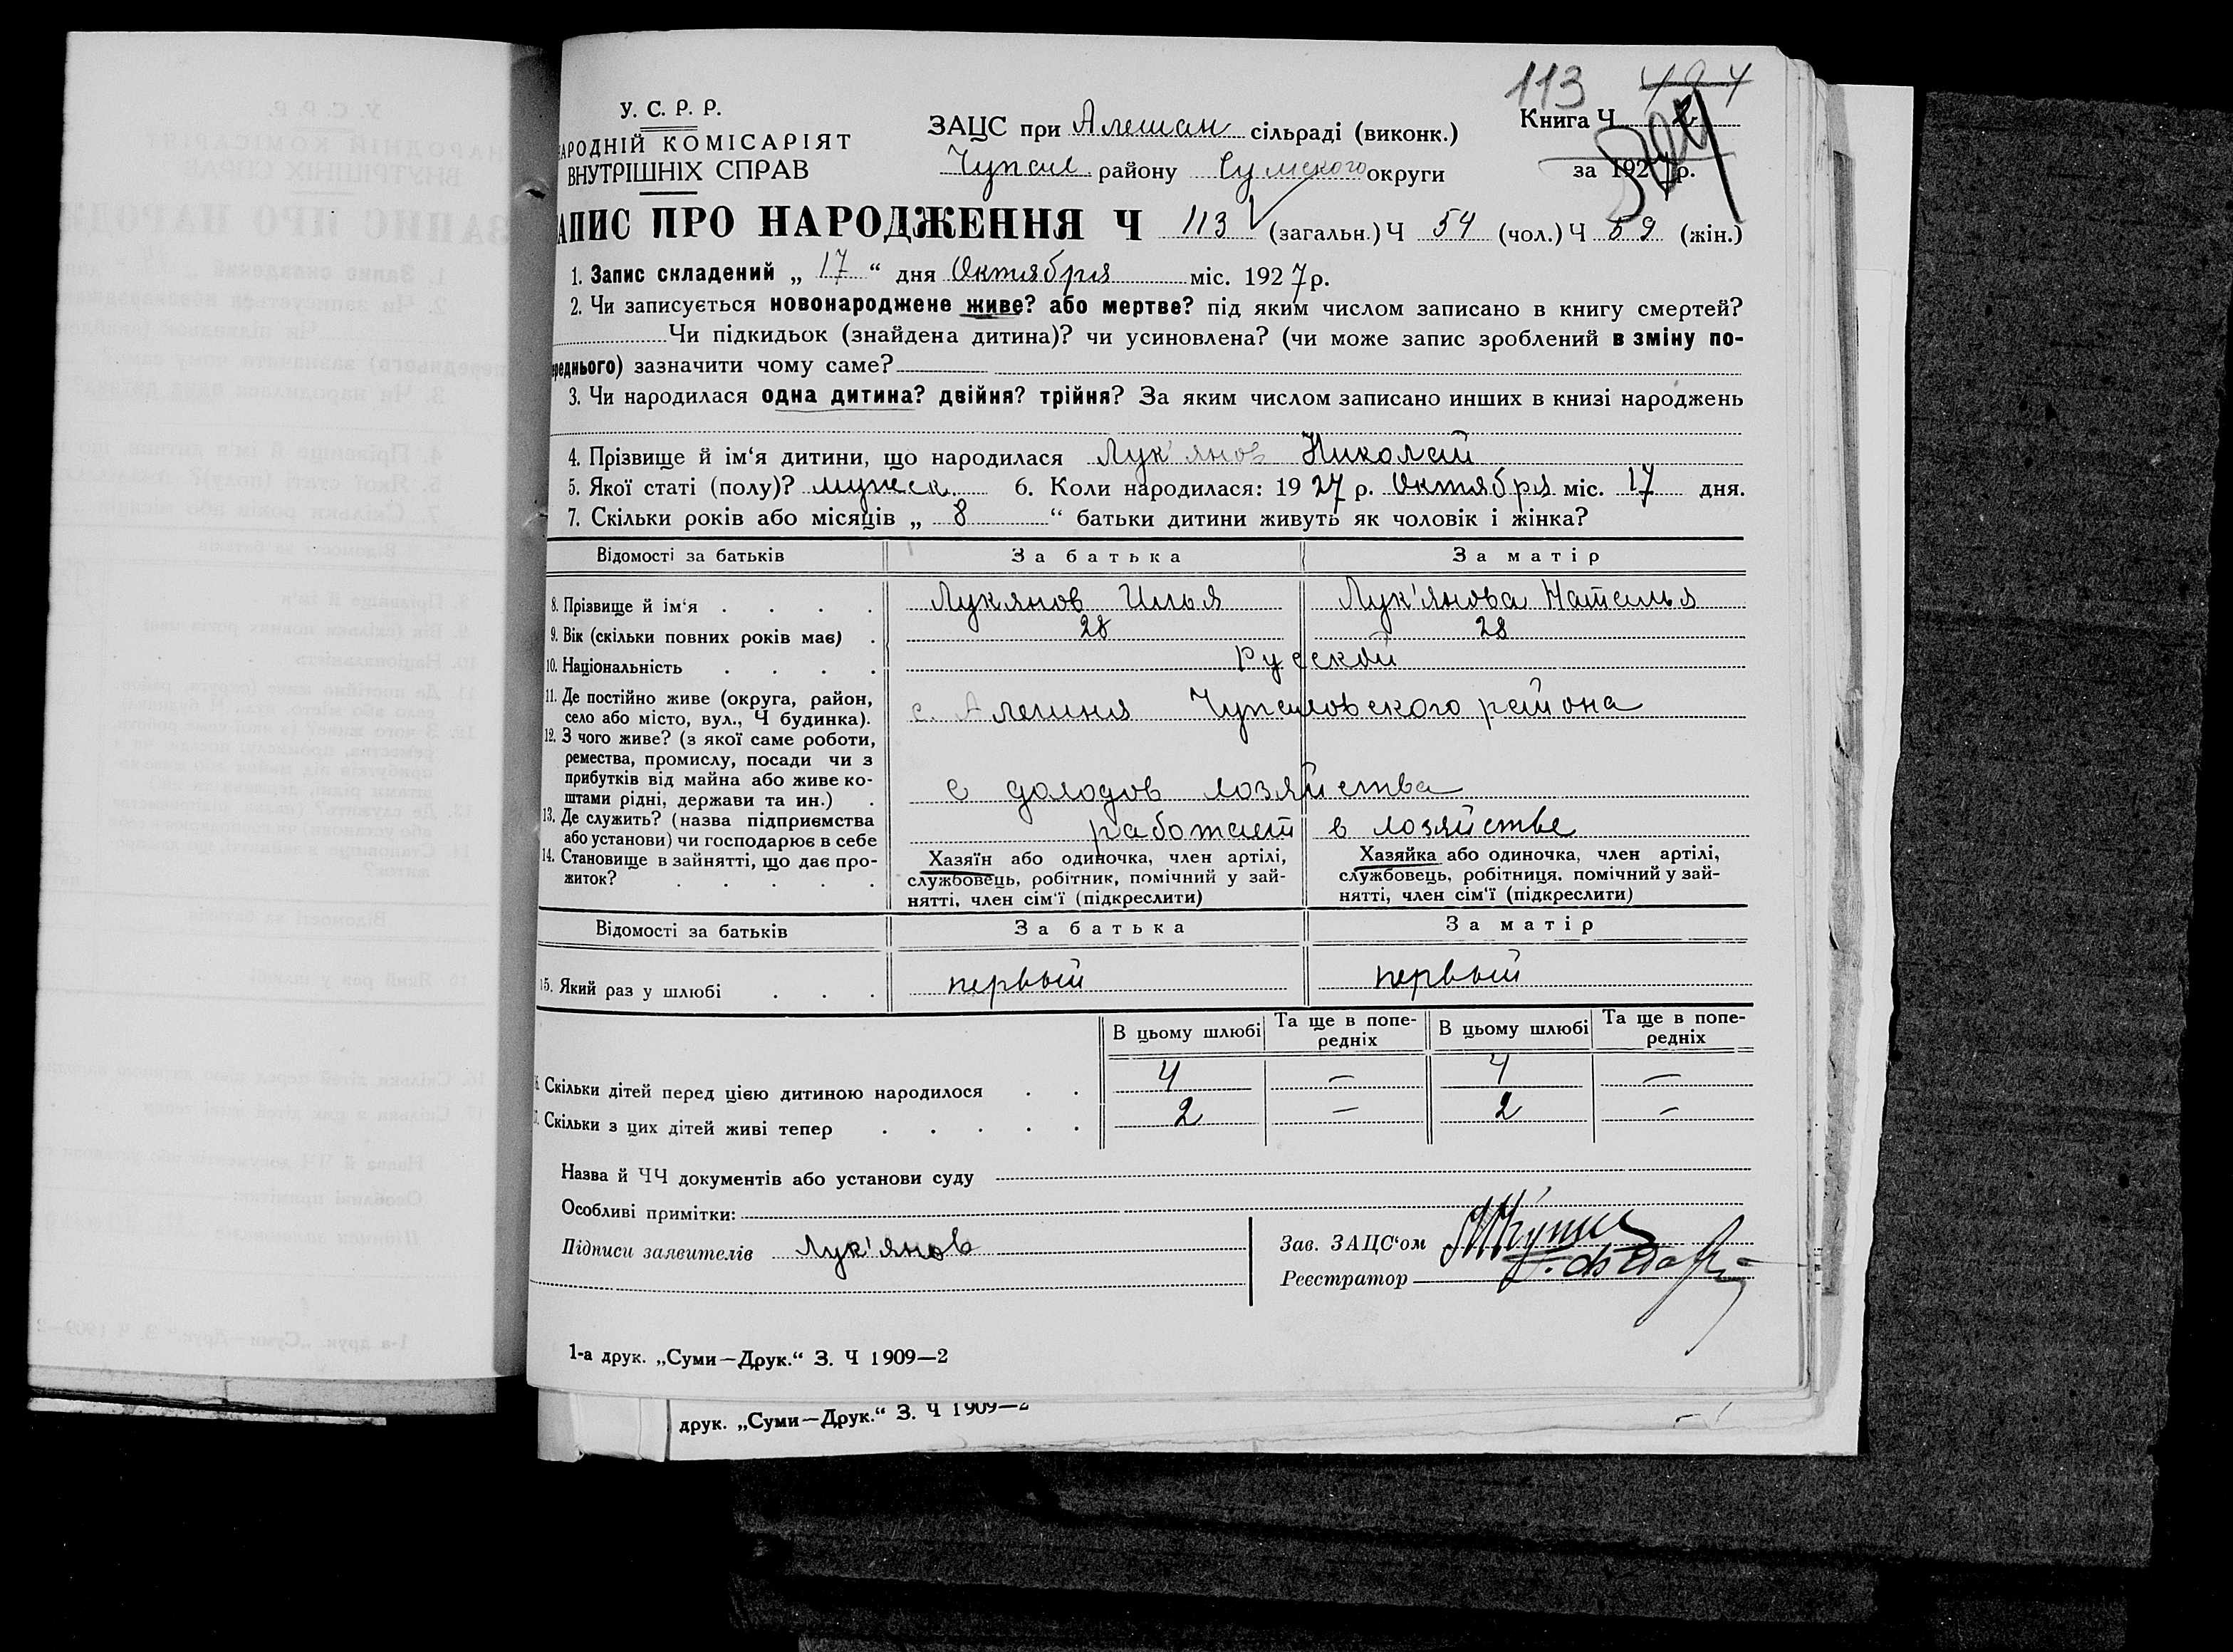 113
У. С. Р. Р.
АРОДНІЙ КОМІСАРІЯТ
ВНУТРІШНІХ СПРАВ
ЗАЦС при Алешан сільраді (виконк.)
района Сумского округи
Книга Ч.
за 1927 р.
АПИС ПРО НАРОДЖЕННЯ Ч 113 (загальн.) Ч 54 (чол.) Ч 59 (жін.)
1. Запис складений „ 17 “ дня Октября міс. 1927 р.
2. Чи записується новонароджене живе? або мертве? під яким числом записано в книгу смертей?
Чи підкидьок (знайдена дитина)? чи усиновлена? (чи може запис зроблений в зміну по-
реднього) зазначити чому саме?
3. Чи народилася одна дитина? двійня? трійня? За яким числом записано инших в книзі народжень
4. Прізвище й ім‘я дитини, що народилася Лук'янов Николай
5. Якої статі (полу)? мужск. 6. Коли народилася: 1927 р. Октября міс. 17 дня.
7. Скільки років або місяців „ 8 “ батьки дитини живуть як чоловік і жінка?
Відомості за батьків За батька За матір
8. Прізвище й ім‘я . . . . Лукянов Илья Лук'янова Наталья
9. Вік (скільки повних років має) . 28 28
10. Національність . . . . Русской
11. Де постійно живе (округа, район,
село або місто, вул., Ч будинка).
с. Алешня Чупаховского района
12. З чого живе? (з якої саме роботи,
ремества, промислу, посади чи з
прибутків від майна або живе ко-
штами рідні, держави та ин.) .
с доходов хозяйства
13. Де служить? (назва підприємства
або установи) чи господарює в себе
работает в хозяйстве
14. Становище в зайнятті, що дає про-
житок? . . . . .
Хазяїн або одиночка, член артілі,
службовець, робітник, помічний у зай-
нятті, член сім‘ї (підкреслити)
Хазяйка або одиночка, член артілі,
службовець, робітниця. помічний у зай-
нятті, член сім‘ї (підкреслити)
Відомості за батьків За батька За матір
15. Який раз у шлюбі . . . первый первый
В цьому шлюбі Та ще в попе-
редніх В цьому шлюбі Та ще в попе-
редніх
Скільки дітей перед цією дитиною народилося . . 4 — 4 —
Скільки з цих дітей живі тепер . . . . . 2 — 2 —
Назва й ЧЧ документів або установи суду
Особливі примітки:
Підписи заявителів Лук'янов
Зав. ЗАЦС‘ом
Реєстратор
1-а друк. „Суми—Друк.“ З. Ч 1909—2
друк. „Суми—Друк.“ З. Ч 1909—2